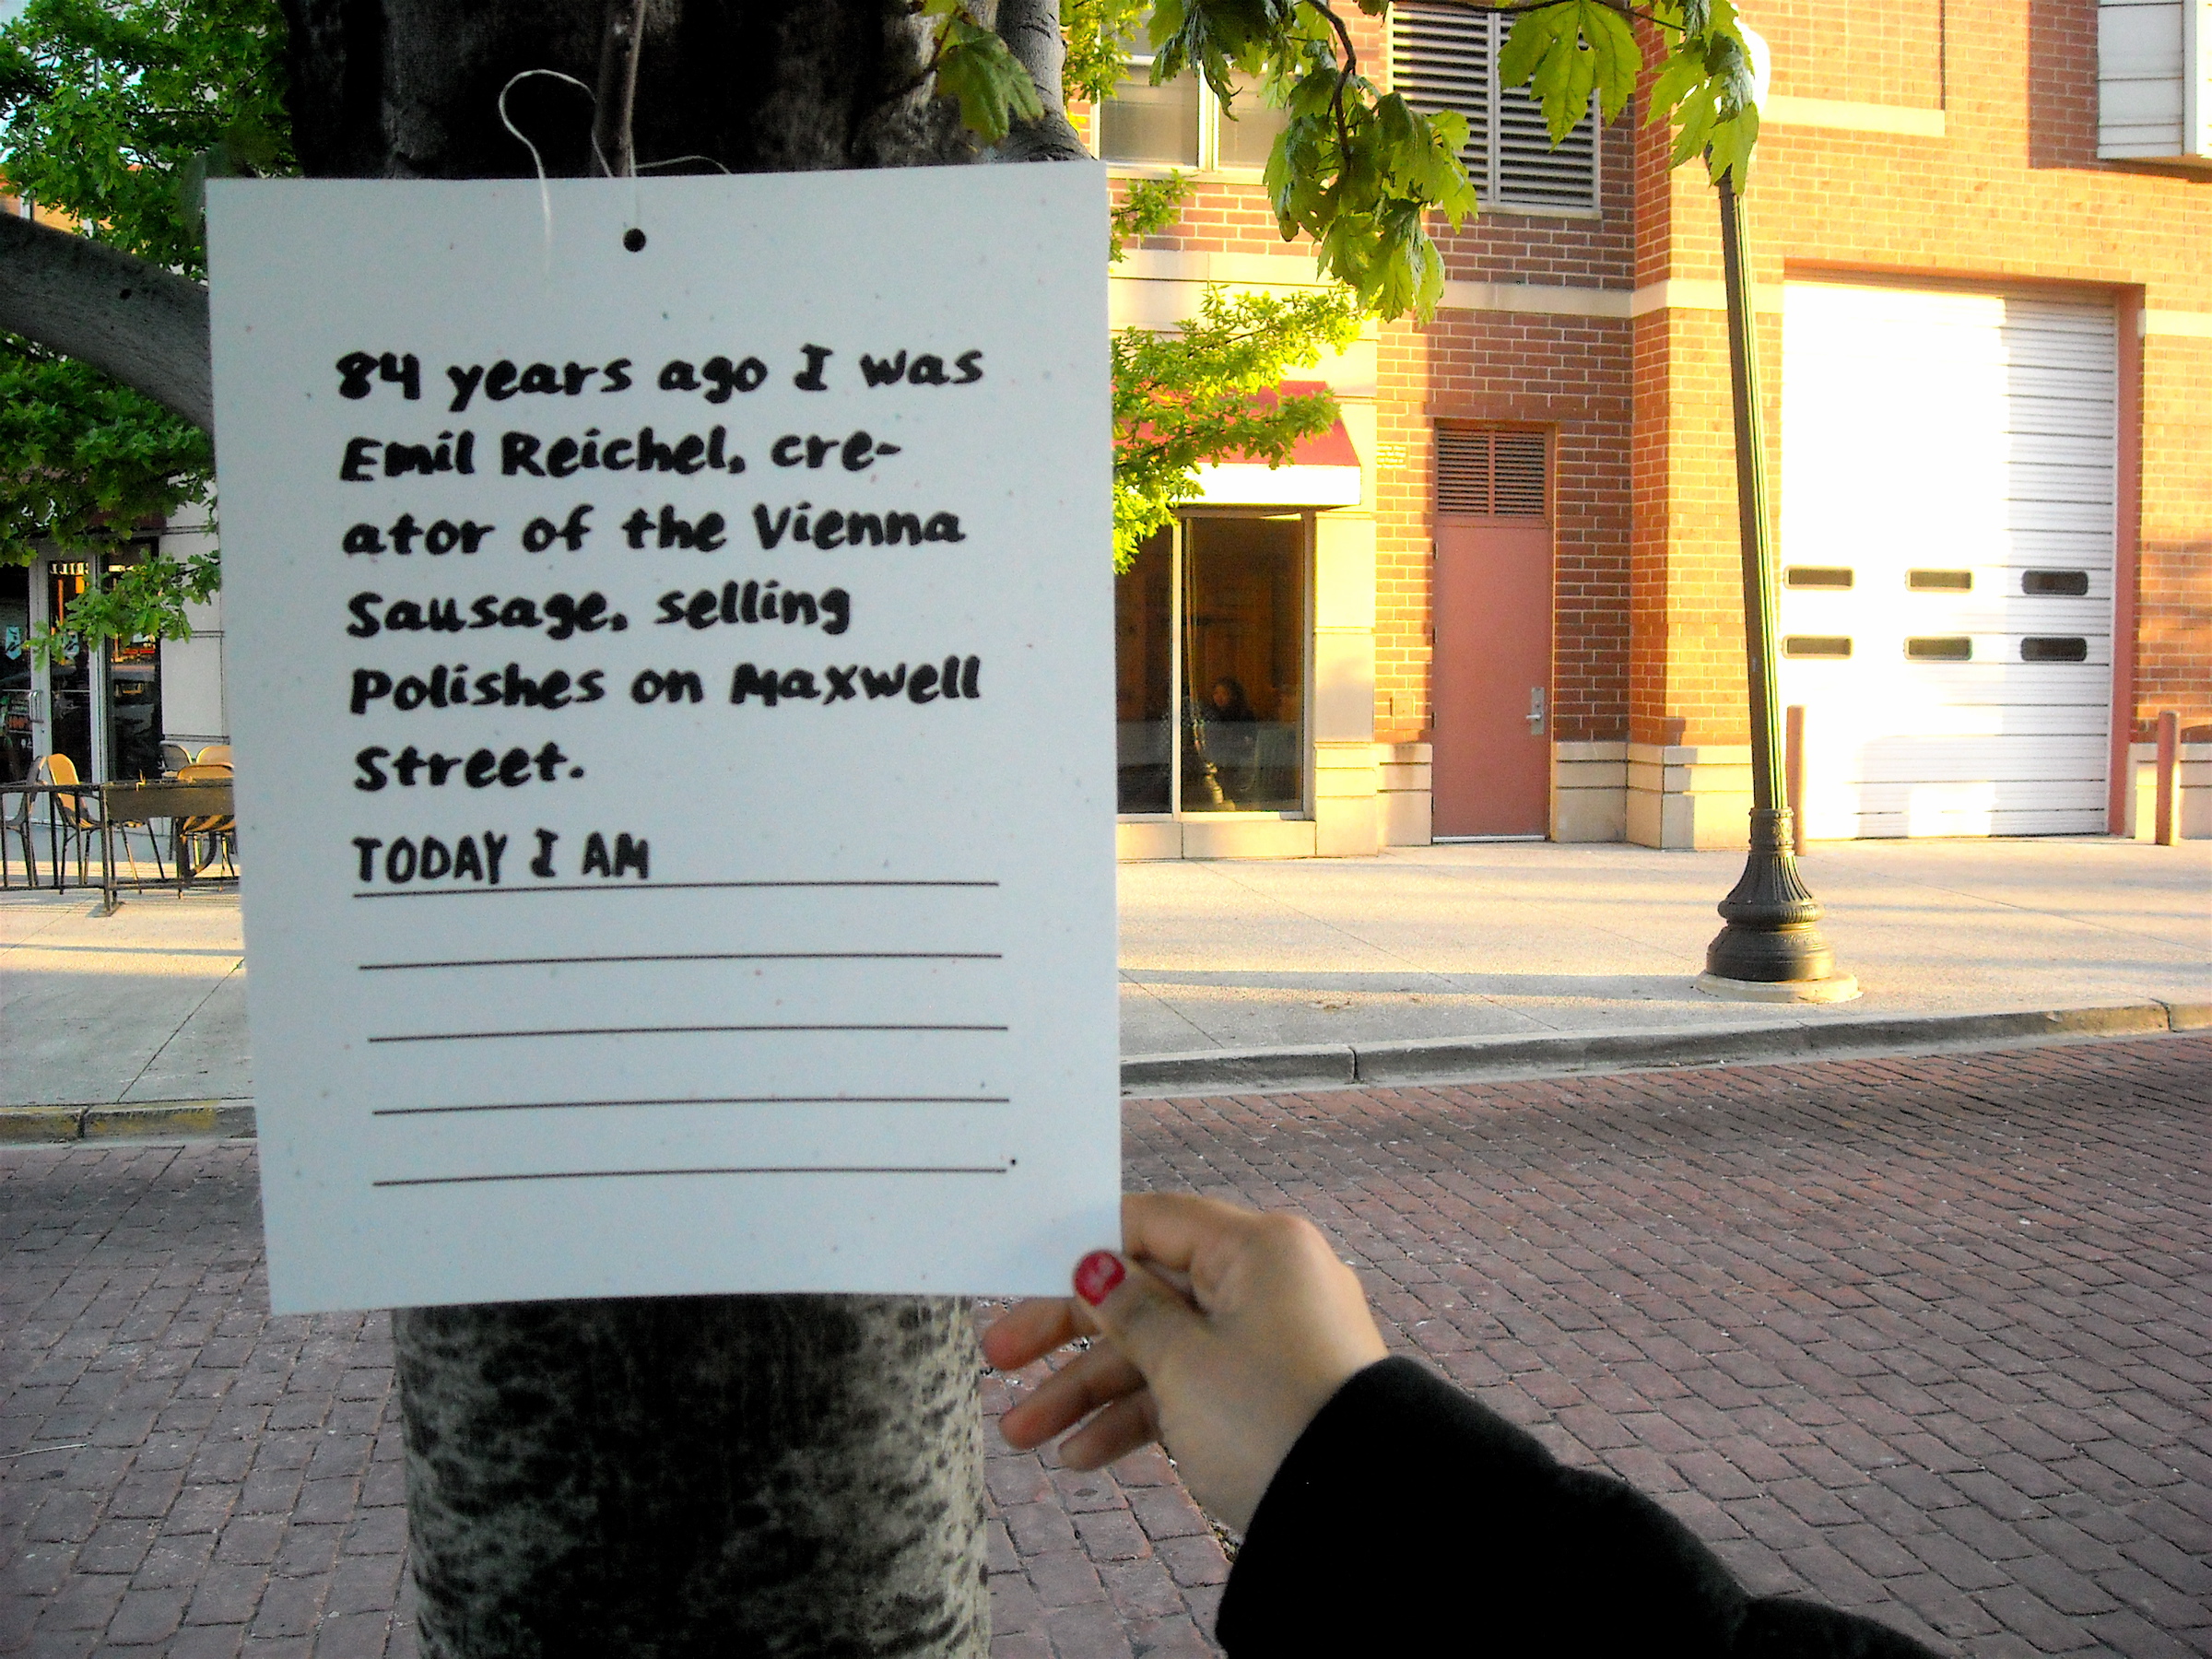 84 years ago I was
Emil Reichel, cre-
ator of the Vienna
Sausage, selling
Polishes on Maxwell
Street.
TODAY I AM